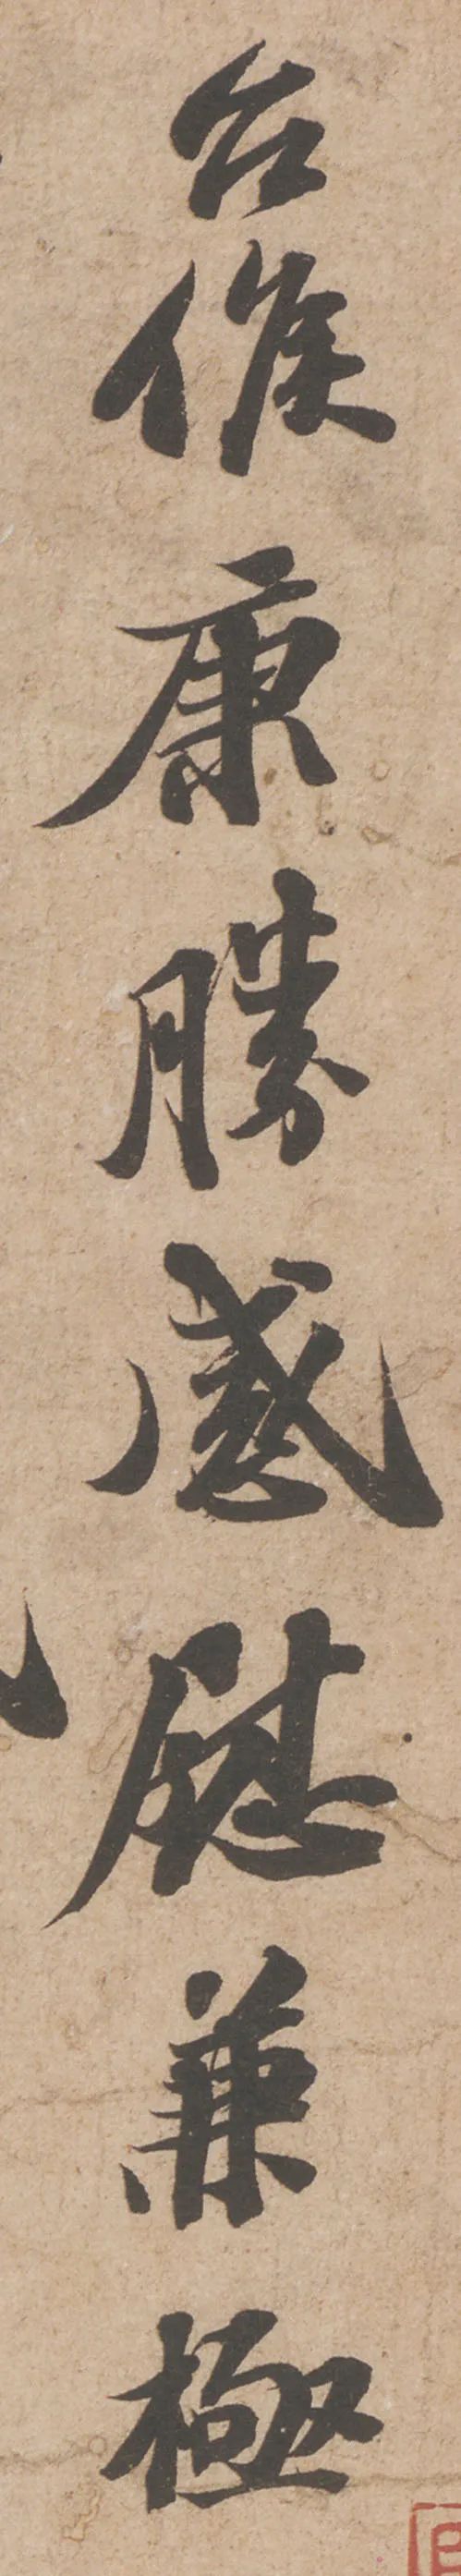 台候康勝感慰兼極